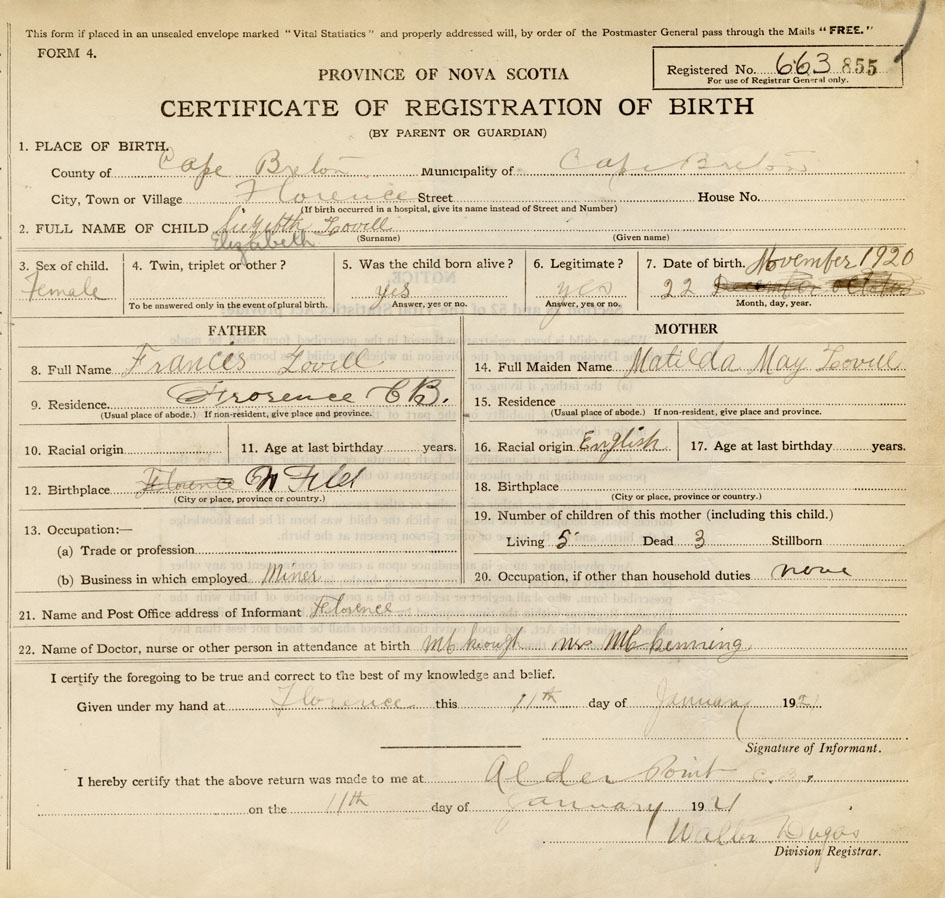 This form if placed in an unsealed envelope marked "Vital Statistics" and properly addressed will, by order of the Postmaster General pass through the Mails "FREE."
FORM 4.
Registered No. 663 855
For use of Registrar General only.
PROVINCE OF NOVA SCOTIA
CERTIFICATE OF REGISTRATION OF BIRTH
(BY PARENT OR GUARDIAN)
1. PLACE OF BIRTH.
County of Cape Breton Municipality of Cape Breton
City, Town or Village Florence Street House No.
(If birth occurred in a hospital, give its name instead of Street and Number)
2. FULL NAME OF CHILD Lovell
Elizabeth (Surname) (Given name)
3. Sex of child. 4. Twin, triplet or other? 5. Was the child born alive? 6. Legitimate? 7. Date of birth. November 1920
Female yes yes 22 December October
To be answered only in the event of plural birth. Answer, yes or no. Answer, yes or no. Month, day, year.
FATHER MOTHER
8. Full Name Francis Lovell 14. Full Maiden Name Matilda May Lovell
9. Residence Florence C B. 15. Residence
(Usual place of abode.) If non-resident, give place and province. (Usual place of abode.) If non-resident, give place and province.
10. Racial origin 11. Age at last birthday years. 16. Racial origin English 17. Age at last birthday years.
12. Birthplace Florence N Fld 18. Birthplace
(City or place, province or country.) (City or place, province or country.)
13. Occupation:— 19. Number of children of this mother (including this child.)
(a) Trade or profession Living 5 Dead 3 Stillborn
(b) Business in which employed Miner 20. Occupation, if other than household duties none
21. Name and Post Office address of Informant Florence
22. Name of Doctor, nurse or other person in attendance at birth McKeough Mrs McKenning
I certify the foregoing to be true and correct to the best of my knowledge and belief.
Given under my hand at Florence this 11th day of January 1921
Signature of Informant.
I hereby certify that the above return was made to me at Alder Point C.B.
on the 11th day of January 1921
Walter Dugas
Division Registrar.